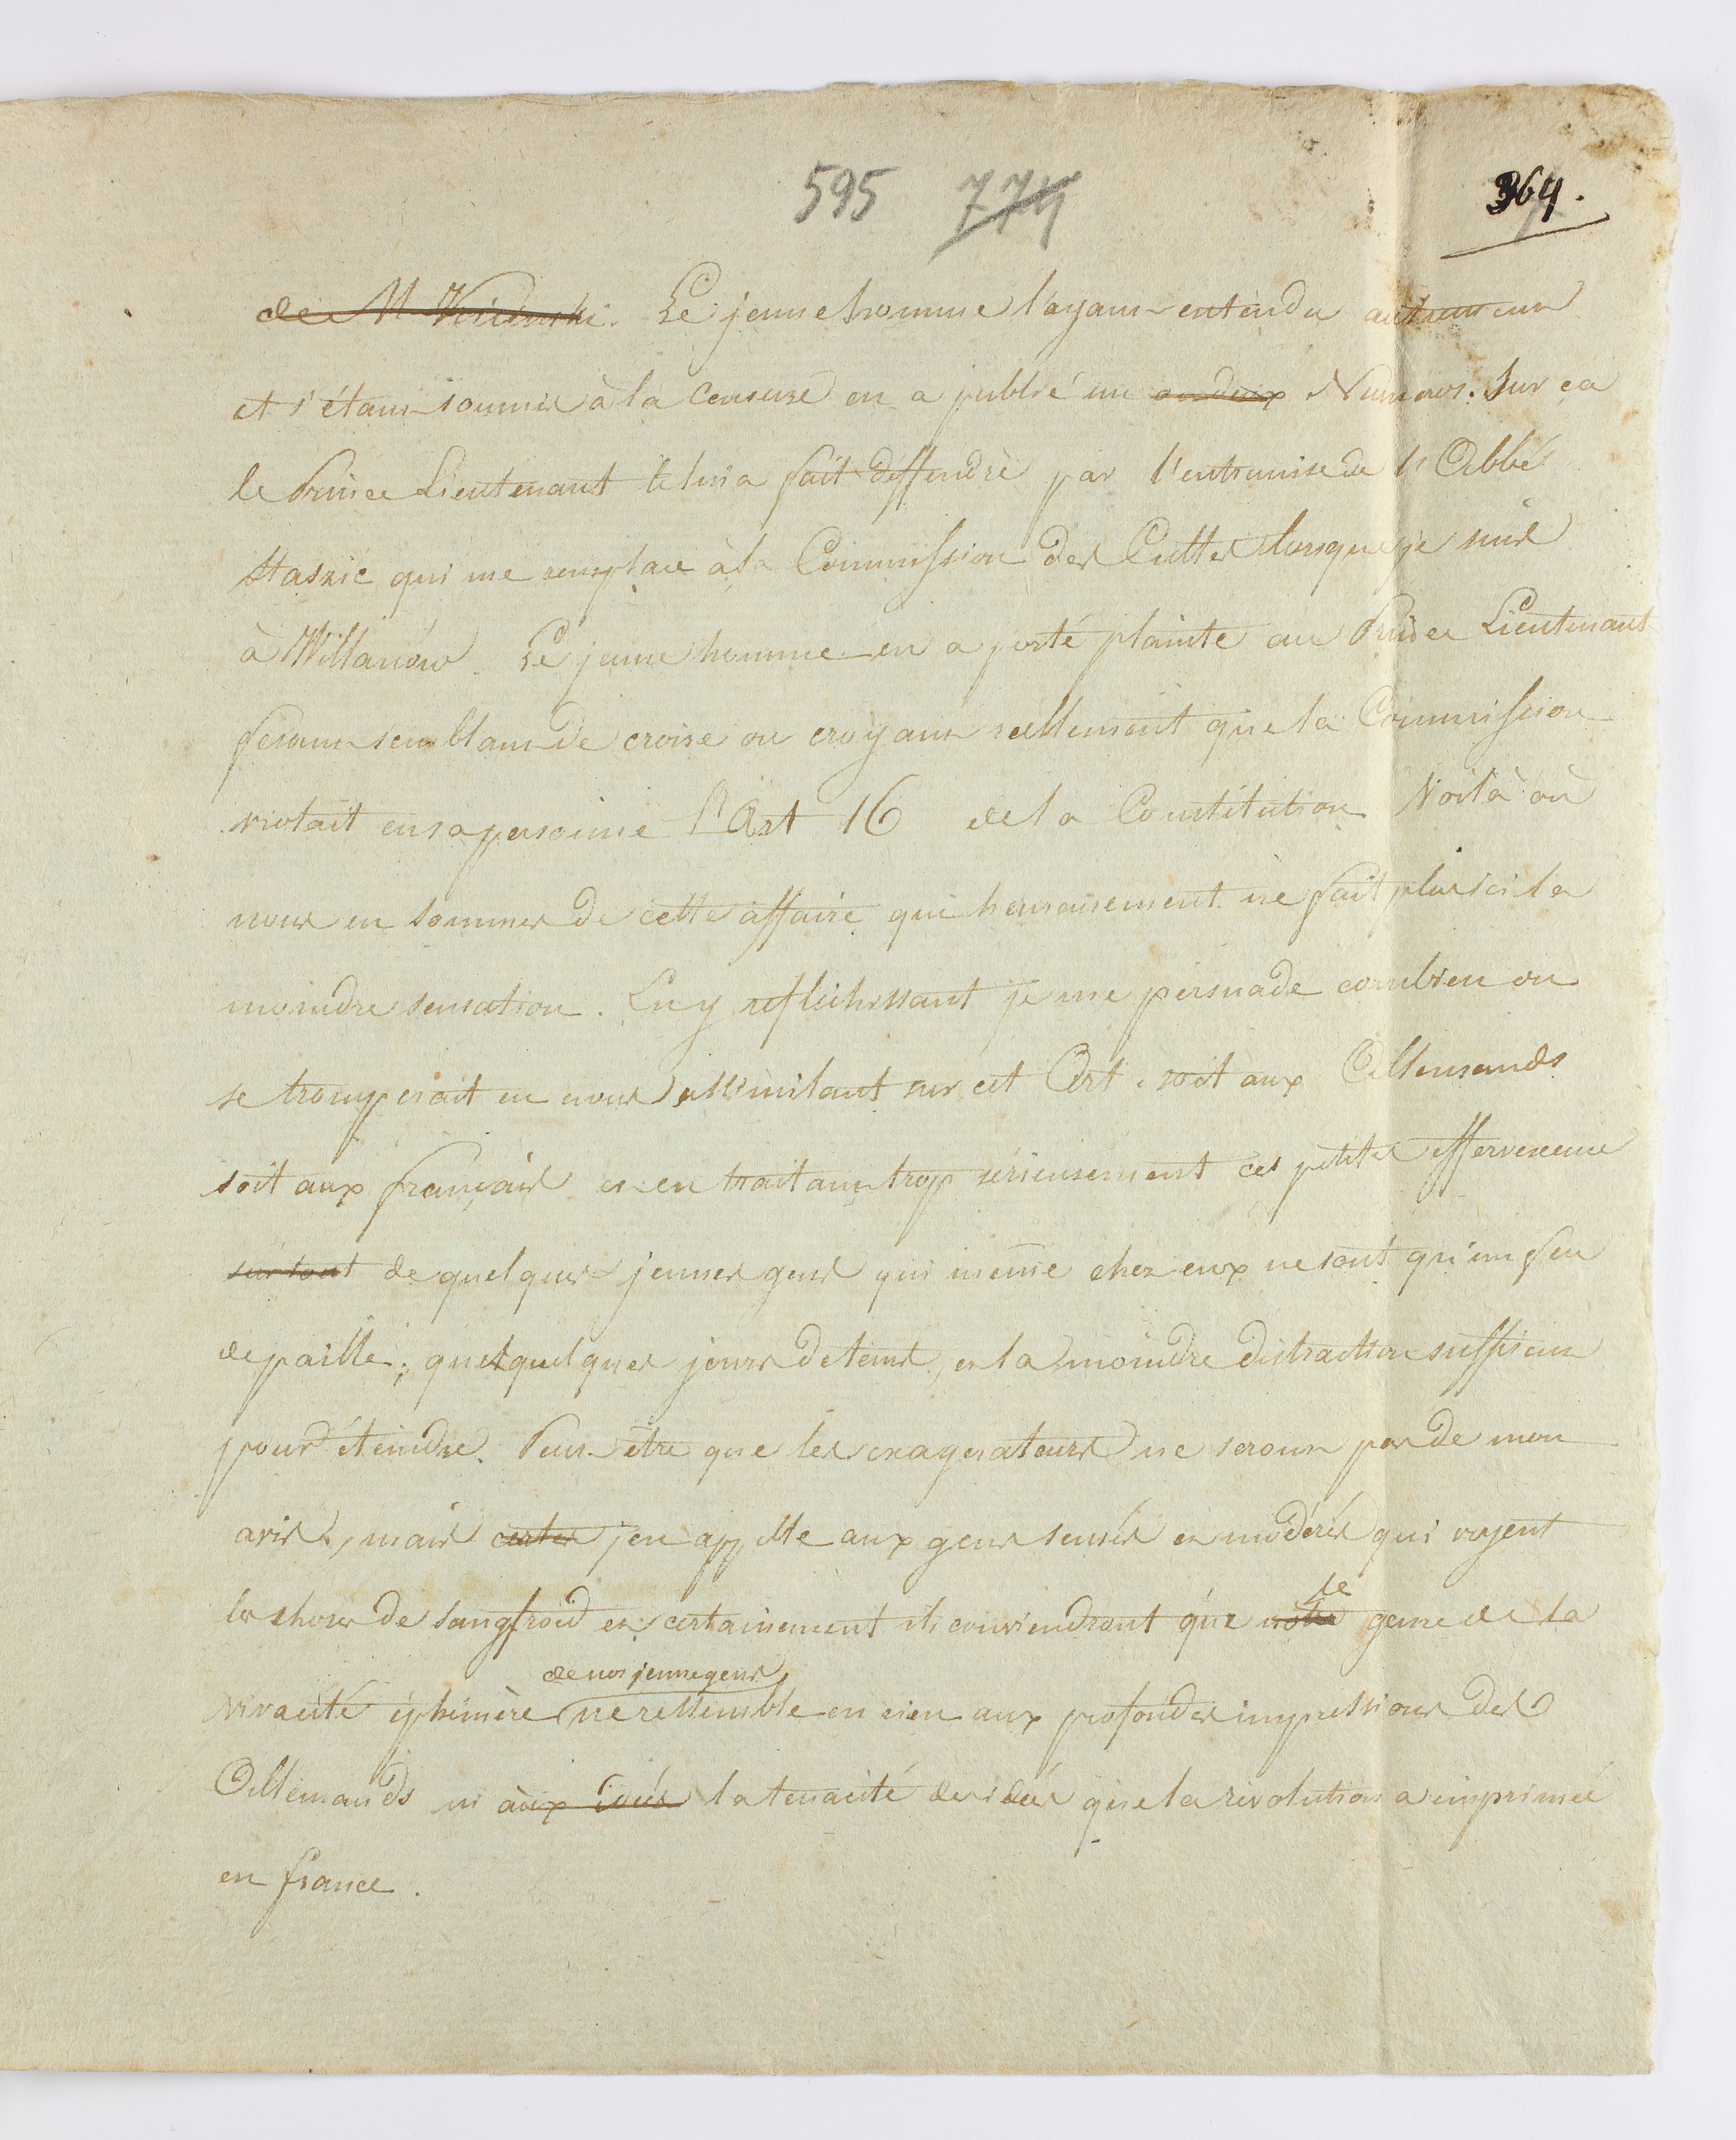 595 774 364.
de M Kicinski. Le jeune homme l'ayant entendu autrement
et s'étant soumis à la Censure en a publié un ou deux Numeros. Sur ca
le Prince Lieutenant le lui a fait deffendre par l'entremise de l'Abbé
Staszic qui me remplace à la Commission des Cultes lorsque je suis
à Willanów. Le jeune homme en a porté plainte au Prince Lieutenant
fesant semblant de croire ou croyant reellement que la Commission
violait en sa personne l'Art 16 de la Constitution Voilà où
nous en sommes de cette affaire qui heureusement ne fait plus ici la
moindre sensation. En y reflechissant je me persuade combien on
se tromperait en nous assimilant sur cet Art. soit aux Allemands
soit aux français et en traitant trop sérieusement ces petites effervescence
surtout de quelques jeunes gens qui même chez eux ne sont qu'un feu
de paille; quelquelques jours de tems, et la moindre distraction suffisent
pour éteindre. Peut-être que les exagerateurs ne seront pas de mon
avis, mais certes j'en appelle aux gens sensés et modérés qui voyent
les choses de sangfroid et certainement ils conviendront que notre le genre de la
de nos jeunes gens
vivacité éphémère ne ressemble en rien aux profondes impressions des
Allemands ni aux idées la tenacité des idées que la revolution a imprimée
en france.